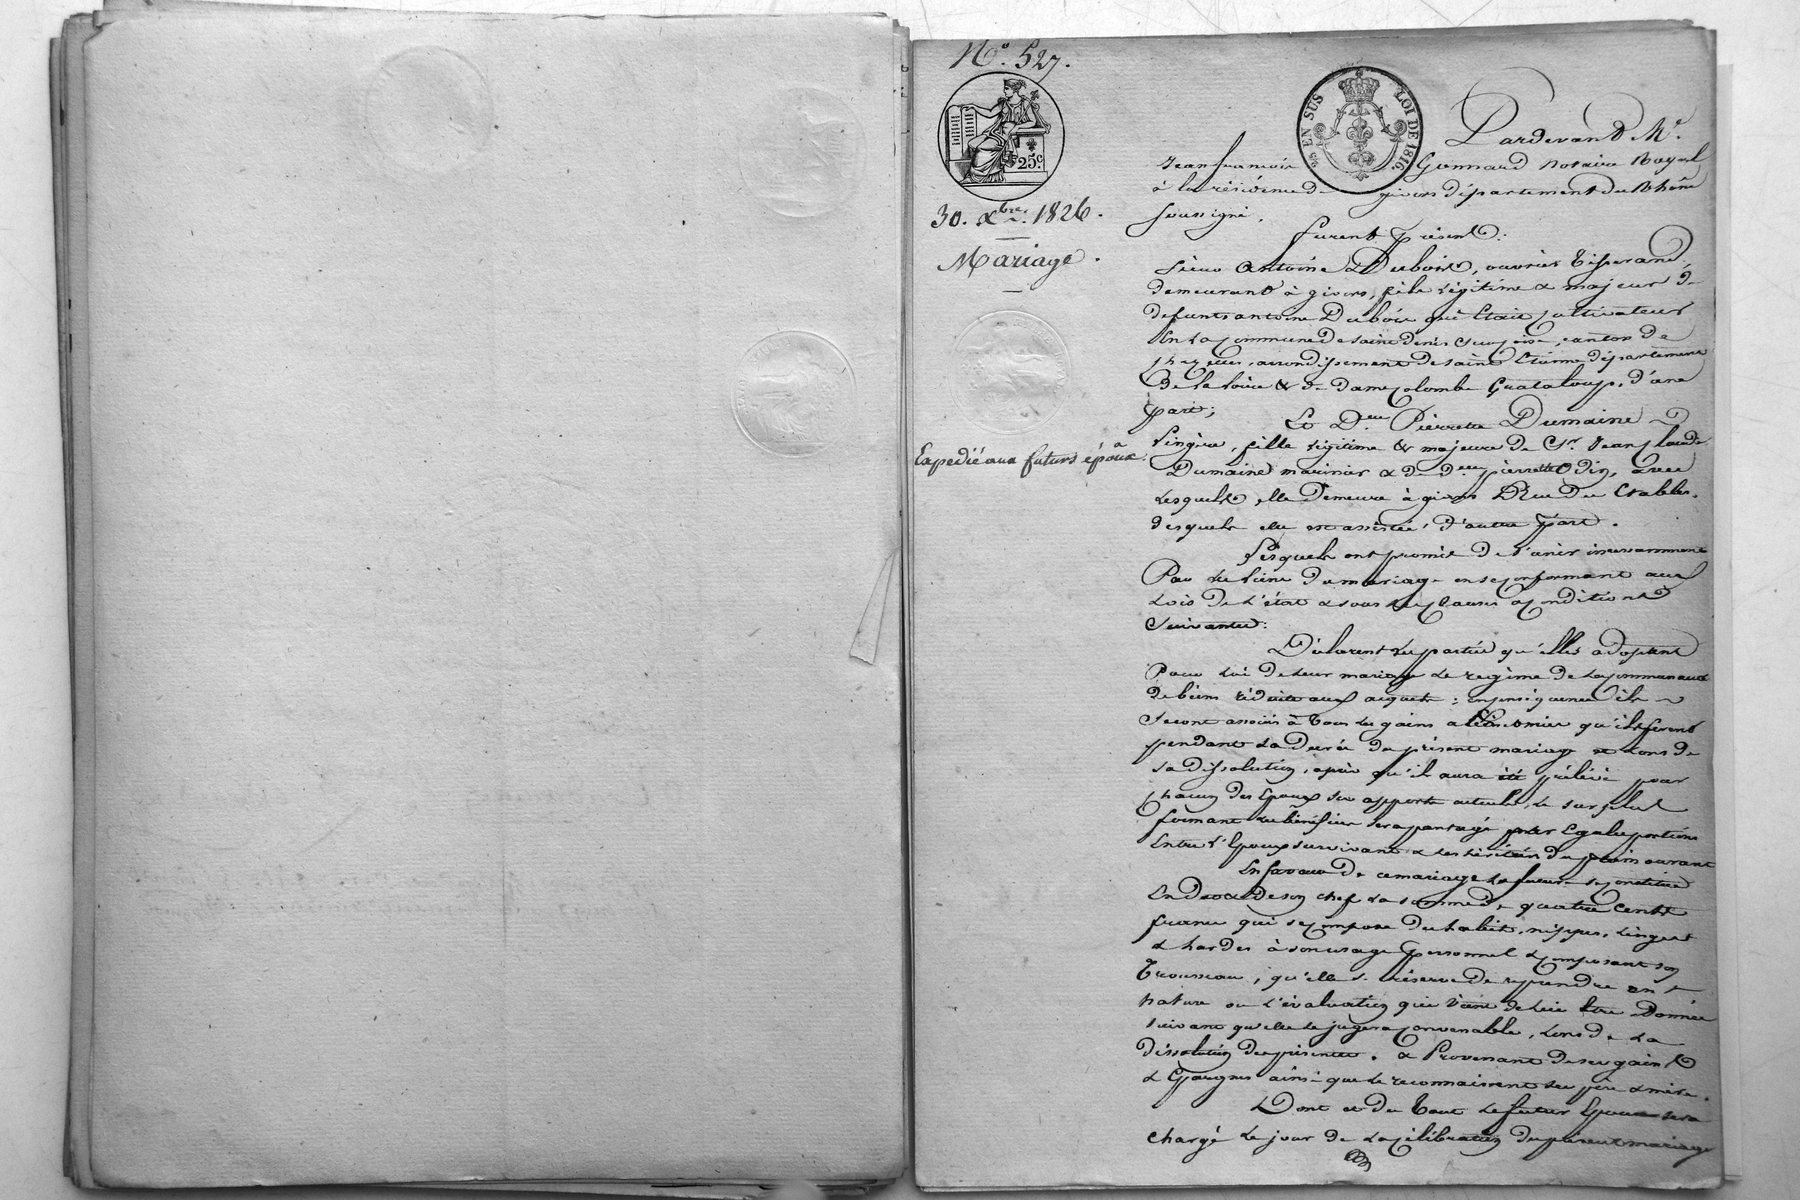 N.° 527.
25 EN SUS LOI DE 1816.
25.c
30. xbre. 1826.
Mariage.
Expedié aux futurs époux.
Pardevant Me.
Jean françois Gonnard Notaire Royal
à la résidence de givors département du Rhône
soussigné,
furent Présents:
Sieur antoine Dubois, ouvrier Tisserand,
demeurant à givors, fils légitime & majeur de
defunts antoine Dubois qui était cultivateur
En la commune de saint denis sur coise, canton de
chazelles, arrondissement de saint Etienne département
de la loire & de dame colombe Grataloup, d'une
part;
Et Delle Pierrette Dumaine
Lingère, fille légitime & majeure de Sr. Jean claude
Dumaine marinier & de De. pierrette Odin, avec
lesquels elle demeure à givors Rue des Etables.
desquels elle est assistée, d'autre Part.
Lesquels ont promis de s'unir incessamment
Par les liens du mariage en se conformant aux
Lois de l'état & sous les clauses & conditions
Suivantes:
Déclarent les parties qu'elles adoptent
Pour loi de leur mariage le régime de la communauté
de biens réduite aux acquets; en conséquence ils
Seront associés à Tous les gains & économies qu'ils feront
pendant la durée du présent mariage et lors de
sa dissolution, après qu'il aura été prélevé par
chacun des Epoux ses apports actuels, le surplus
formant les bénéfices sera partagé par égales portions
Entre l'Epoux survivant & les héritiers du prémourant
En faveur de ce mariage la future se constitue
En dot de son chef la somme de quatre cents
francs qui se compose de habits, nippes, linges
& hardes à son usage personnel & composant son
Trousseau, qu'elle se réserve de reprendre en
nature ou l'évaluation qui vient de lui être donnée
suivant qu'elle le jugera convenable, lors de la
dissolution des présentes. & Provenant de ses gains
& Epargnes ainsi que le reconnaissent ses père & mère.
Dont et du Tout le futur Epoux sera
chargé le jour de la célébration du présent mariage